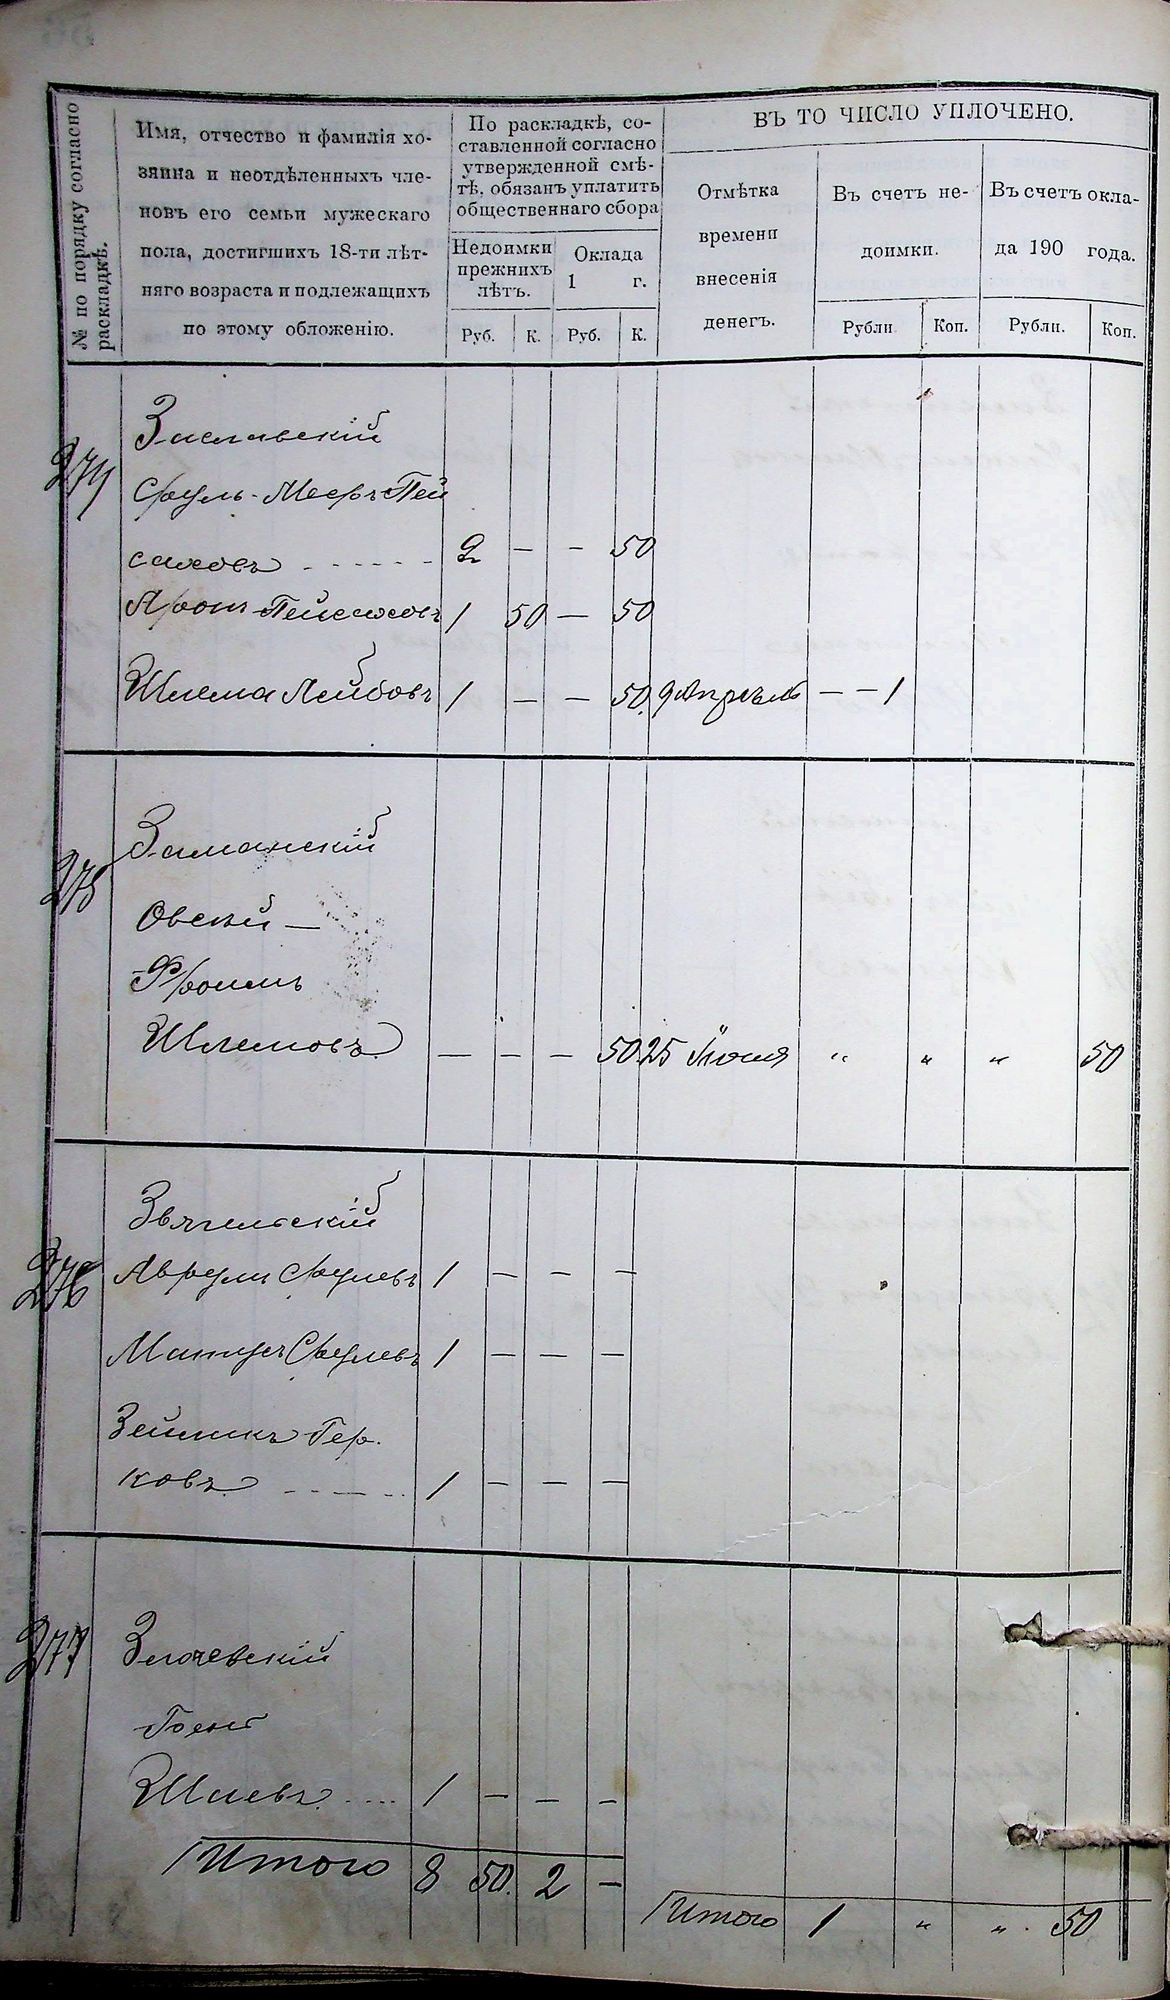 № по порядку согласно раскладкѣ.
Имя, отчество и фамилія хо-
зяина и неотдѣленныхъ чле-
новъ его семьи мужескаго
пола, достигшихъ 18-ти лѣт-
няго возраста и подлежащихъ
по этому обложенію.
По раскладкѣ, со-
ставленной согласно
утвержденной смѣ-
тѣ, обязанъ уплатить
общественнаго сбора
Недоимки
прежнихъ
лѣтъ.
Оклада
1 г.
Руб. К. Руб. К.
ВЪ ТО ЧИСЛО УПЛОЧЕНО.
Отмѣтка
времени
внесенія
денегъ.
Въ счетъ не-
доимки.
Въ счетъ окла-
да 190 года.
Рубли Коп. Рубли. Коп.
274
Заславскій
Сруль-Мееръ Пей
саховъ 2 — — 50
Аронъ Пейсаховъ 1 50 — 50
Шлема Лейбовъ 1 — — 50. 9 Апрѣль — — 1
275
Заманскій
Овсѣй —
Фроимъ
Шлемовъ — — — 50 25 Іюня " " " 50
276
Звягельскій
Аврумъ Срулевъ 1 — — —
Манусъ Срулевъ 1 — — —
Зейликъ Гер.
ковъ 1 — — —
277
Злочевскій
Шаевъ 1 — — —
Итого 8 50. 2 —
Итого 1 " " 50